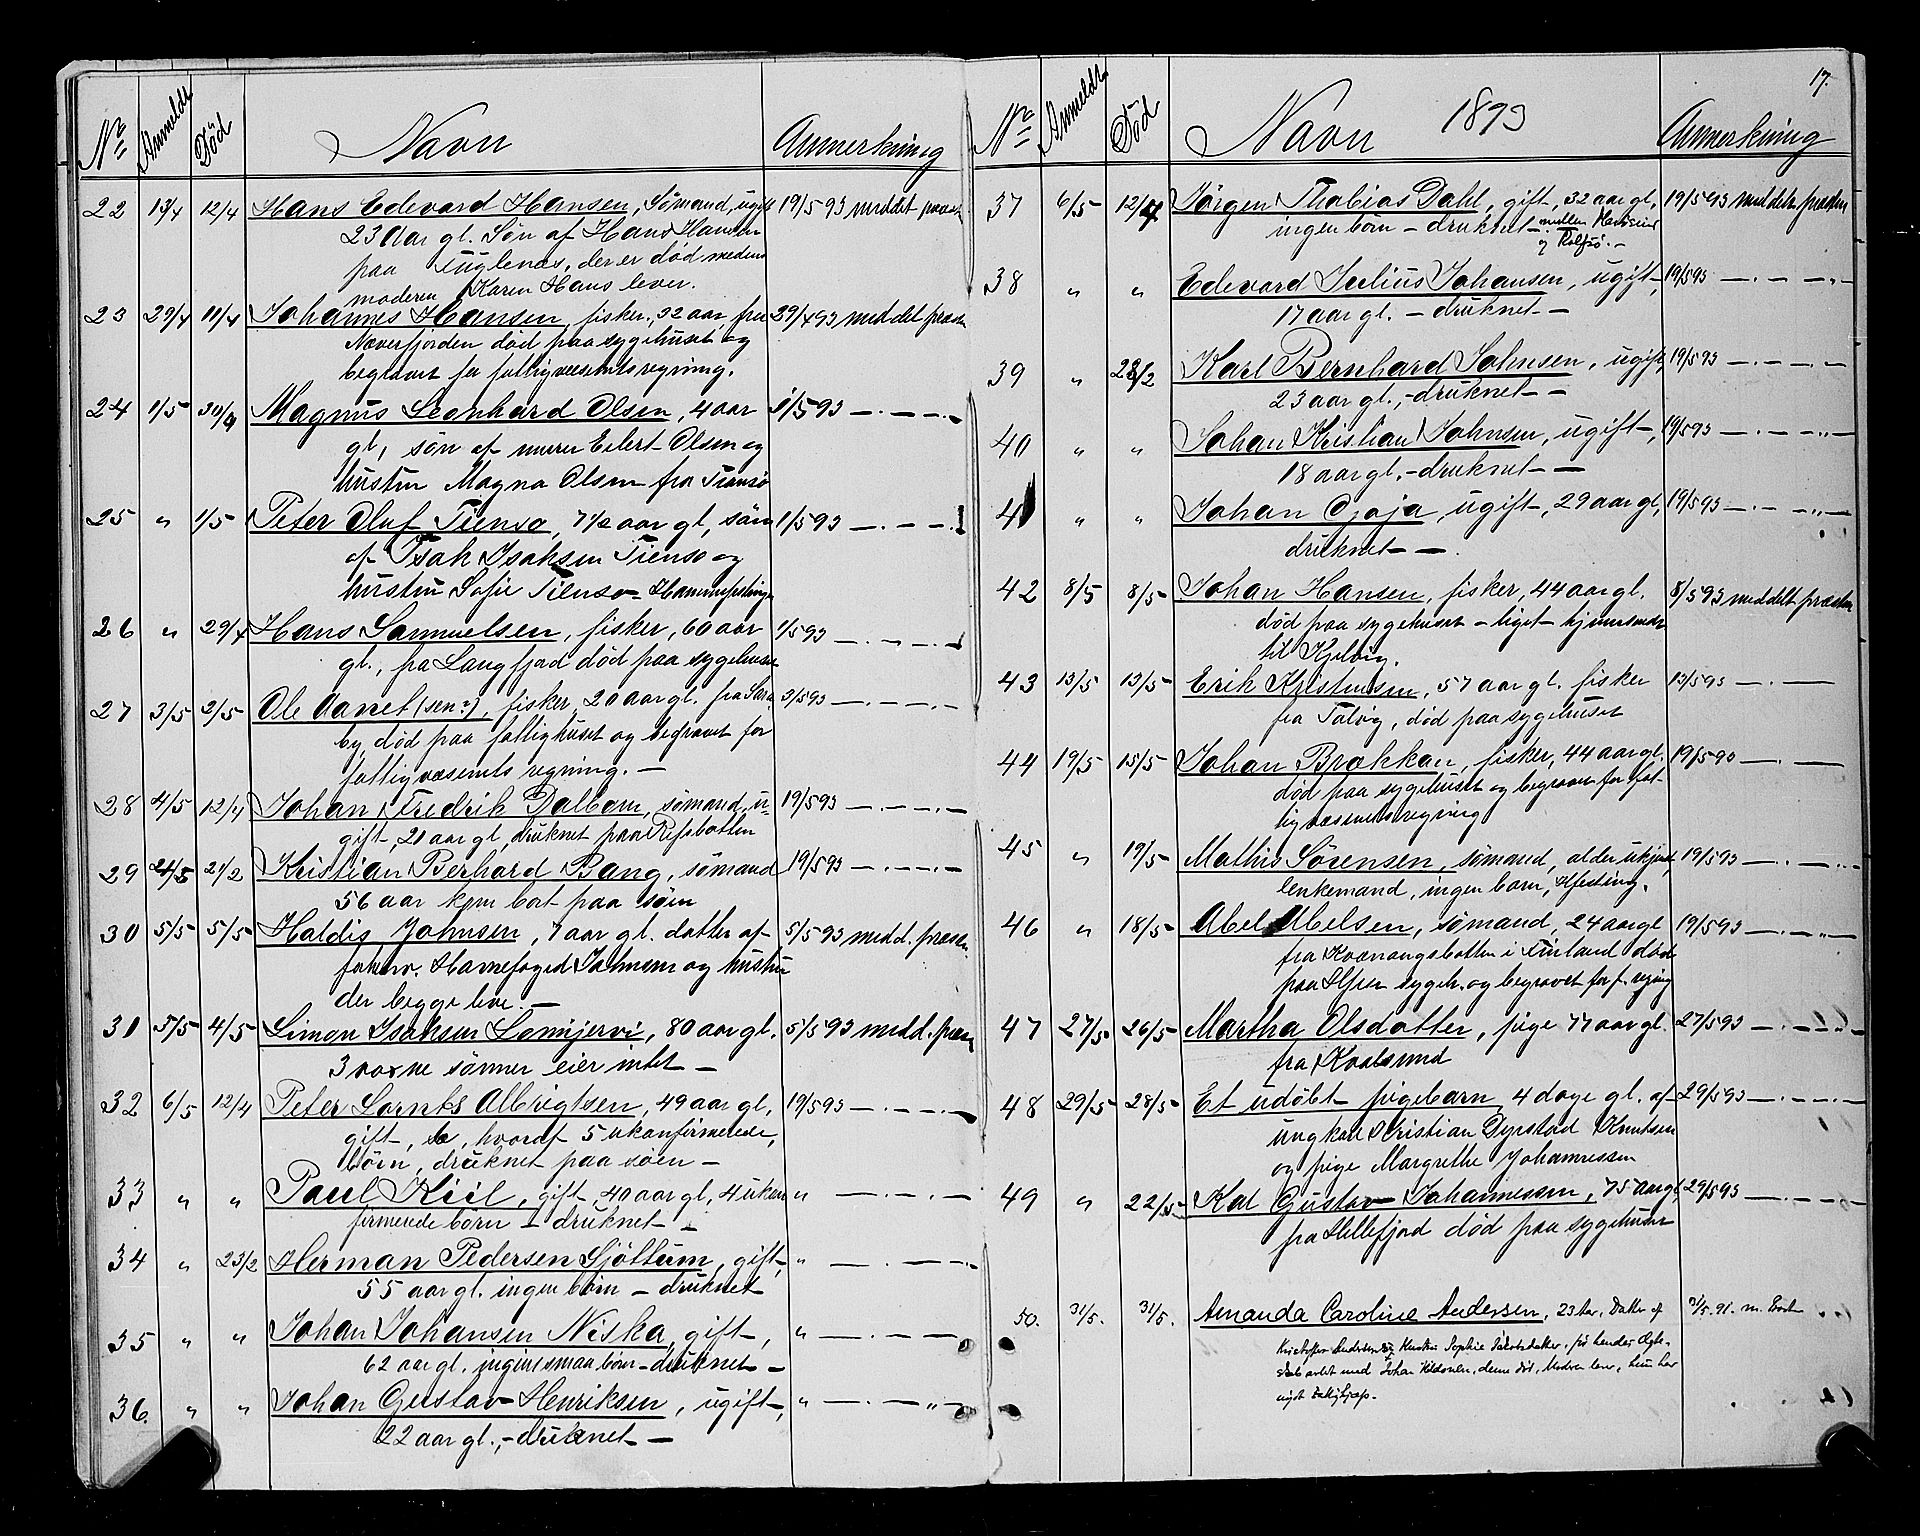 No Anmeldt Död Navn Anmerkning
22 13/4 12/4 Hans Edevard Hansen, Sömand, ugift 19/5 93 meddelt
23 Aar gl. Søn af Hans Hansen
paa Fuglenæs, der er död medens
moderen Karen Hans lever.
23 29/4 11/4 Johannes Hansen, fisker, 32 aar, fra 29/4 93 meddelt
Næverfjorden död paa sygehuset og
begravet for fattigvæsenets regning.
24 1/5 30/4 Magnus Leonhard Olsen, 4 aar 1/5 93 — . — — .
gl, søn af murer Eilert Olsen og
hustru Magna Olsen fra Tromsø
25 " 1/5 Peter Oluf Tienso, 7 1/2 aar gl, søn 1/5 93 — . — —
af Isak Isaksen Tienso og
hustru Sofie Tienso
26 " 29/4 Hans Samuelsen, fisker, 60 aar 1/5 93 — . — — .
gl., fra Langfjord död paa sygehuset
27 3/5 2/5 Ole Aanet (sen?), fisker, 20 aar gl. fra 3/5 93 — . — — .
by, död paa fattighuset og begravet for
fattigvæsenets regning. —
28 4/5 12/4 Johan Fredrik Dalbom, sömand, u- 19/5 93 — . — — .
gift, 20 aar gl, druknet paa Refsbotten
29 24/5 21/2 Kristian Berhard Bang, sömand 19/5 93 — . — — .
56 aar kom bort paa søen
30 5/5 5/5 Haldis Johnsen, 7 aar gl. datter af 5/5 93 medd. præsten
Havnefoged Johnsen og hustru
der begge leve. —
31 5/5 4/5 Simon Isaksen Lomijervi, 80 aar gl. 5/5 93 medd. præsten
3 voxne sønner eier intet —
32 6/5 12/4 Peter Lornts Albrigtsen, 49 aar gl, 19/5 93 — . — — .
gift, hvoraf 5 ukonfirmerede,
börn, druknet paa søen —
33 " " Paul Kiil, gift, 40 aar gl, 4 ukon " — . — . —
firmerede börn — druknet —
34 " 23/2 Herman Pedersen Sjöttum, gift, " — . — — .
55 aar gl. ingen börn — druknet
35 " " Johan Johansen Niska, gift, " — . — . — —
62 aar gl. ingen smaa börn — druknet —
36. " " Johan Gustav Henriksen, ugift, " — . — " —
22 aar gl., — druknet —
17.
No Anmeldt Död Navn 1893 Anmerkning
37 6/5 12/4 Jörgen Thobias Dahl, gift, 32 aar gl, 19/5 93 meddelt præsten
ingen börn — druknet — mellem
og Rolfsö. —
38 " " Edevard Julius Johansen, ugift, 19/5 93 — . — . " —
17 aar gl. — druknet —
39 " 28/2 Karl Bernhard Johnsen, ugift, 19/5 93 — . — — .
23 aar gl., — druknet — —
40 " " Johan Kristian Johnsen, ugift, 19/5 93 — . — . " —
18 aar gl. — druknet — —
41 " " Johan Ojaja, ugift, 29 aar gl, 19/5 93 — . — " —
druknet — — .
42 8/5 8/5 Johan Hansen, fisker, 44 aar gl. 8/5 93 meddelt præsten
död paa sygehuset — liget hjemsendt
til Kjelvig.
43 13/5 13/5 Erik Kristensen, 57 aar gl. fisker 13/5 93 — . —
fra Talvig, död paa sygehuset
44 19/5 15/5 Johan Brakkan, fisker, 44 aar gl. 19/5 93 — . —
död paa sygehuset og begravet for fat-
tigvæsenets regning
45 " 19/5 Mathis Sörensen, sömand, alder ukjent, 19/5 93 — . — . —
enkemand, ingen barn, Hfesting.
46 " 18/5 Abel Abelsen, sömand, 24 aar gl 19/5 93 — . — " —
fra Kvænangsbotten i Finland död
paa sygeh. og begravet for f. regning
47 27/5 26/5 Martha Olsdatter, pige 77 aar gl. 27/5 93 — . — . —
fra Kvalsund
48 29/5 28/5 Et udöbt pigebarn 4 dage gl. af 29/5 93 — . — . —
ungkarl Kristian Dyrstad Knutsen
og pige Margrethe Johannessen
49 " 22/5 Karl Gustav Johannessen, 75 aar gl, 29/5 93 — . — . —
fra Hellefjord död paa sygehuset
50. 31/5. 31/5. Amanda Caroline Andersen, 23 Aar, Datter af
Kristoffer Andersen og Hustru Sophie Jakobsdatter, før hendes Ægte-
skab avlet med Johan denne död, Modren lever, hun har
nydt